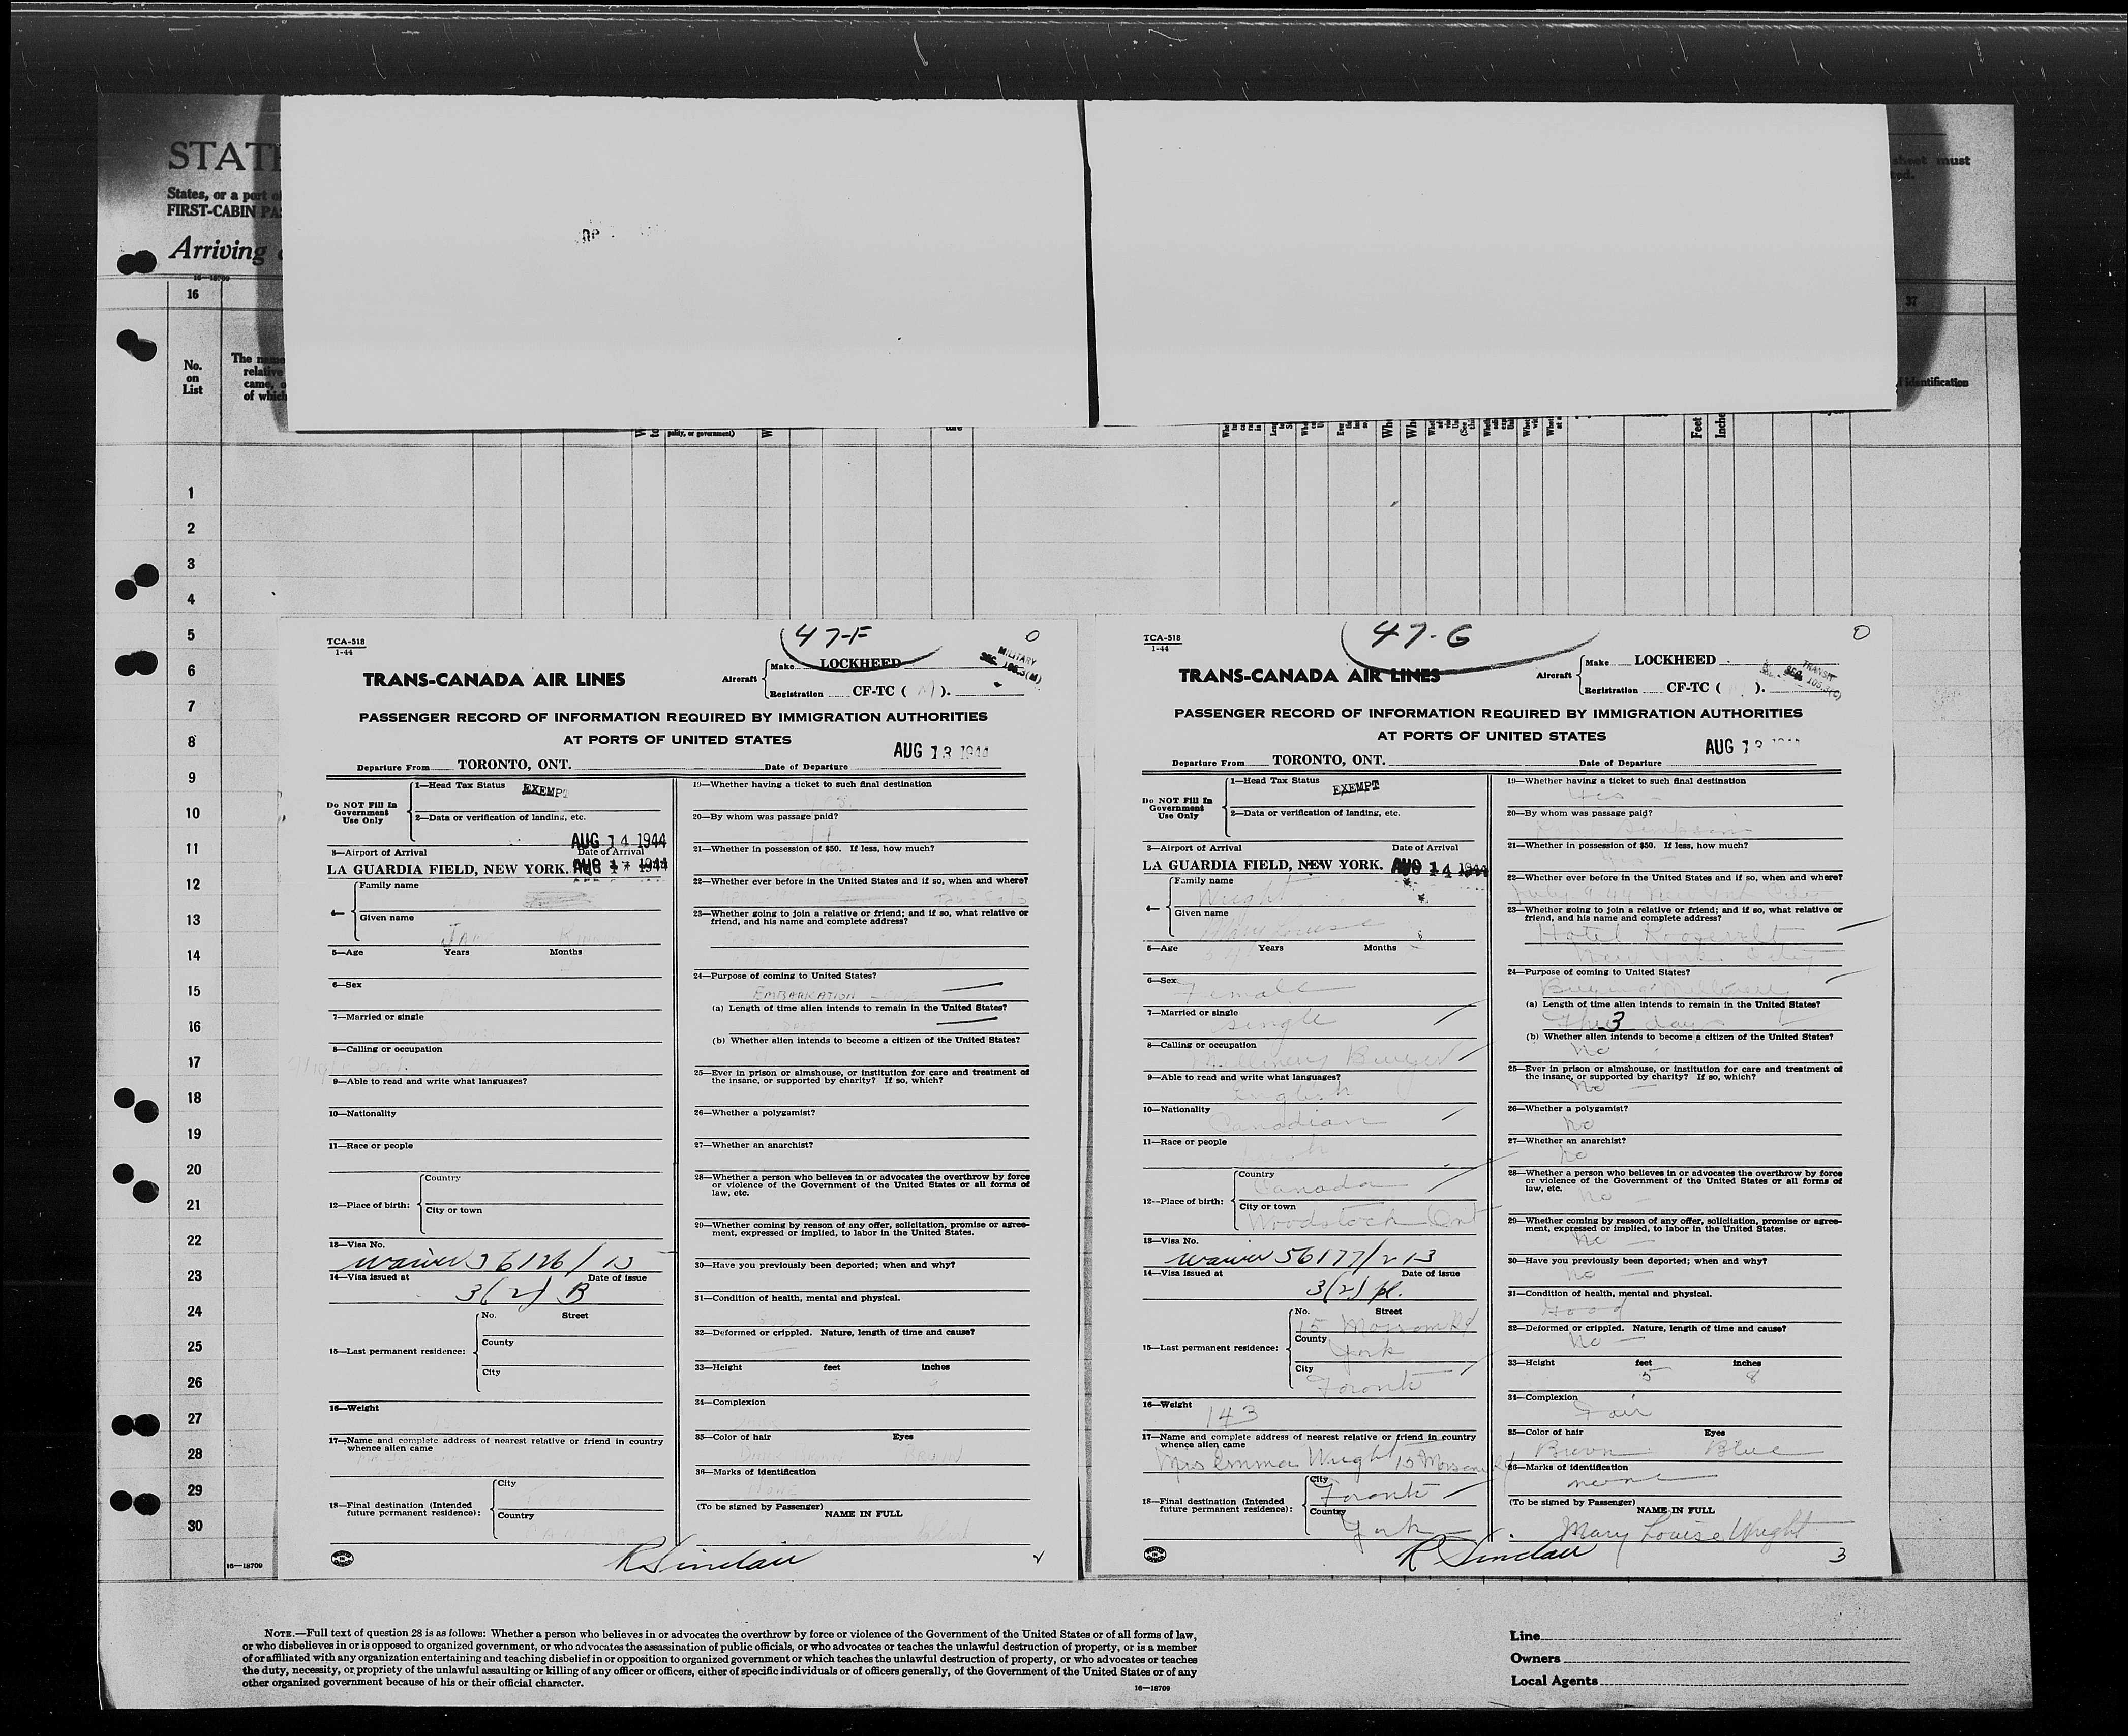 STAT
States, or a port o
FIRST-CABIN PA
Arriving
16—18709
sheet must
ted.
16
37
No.
on
List
The name
relative
came, o
of which
identification
pality, or government)
Feet
Inche
1
2
3
4
5
6
7
8
9
10
11
12
13
14
15
16
17
18
19
20
21
22
23
24
25
26
27
28
29
30
16—18709
TCA-518
1-44
47-F
0
TRANS-CANADA AIR LINES
Aircraft
Make LOCKHEED
Registration CF-TC ( M ).
MILITARY
SEC. 105.3(M)
PASSENGER RECORD OF INFORMATION REQUIRED BY IMMIGRATION AUTHORITIES
AT PORTS OF UNITED STATES
AUG 13 1944
Departure From TORONTO, ONT. Date of Departure
Do NOT Fill In
Government
Use Only
1—Head Tax Status EXEMPT
2—Data or verification of landing, etc.
AUG 14 1944
3—Airport of Arrival Date of Arrival
LA GUARDIA FIELD, NEW YORK.
4—
Family name
Given name
5—Age Years Months
6—Sex
7—Married or single
8—Calling or occupation
9—Able to read and write what languages?
10—Nationality
11—Race or people
12—Place of birth:
Country
City or town
13—Visa No.
waiver 36126/13
14—Visa issued at Date of issue
3(2) B
15—Last permanent residence:
No. Street
County
City
16—Weight
17—Name and complete address of nearest relative or friend in country
whence alien came
18—Final destination (Intended
future permanent residence):
City
Country
19—Whether having a ticket to such final destination
20—By whom was passage paid?
21—Whether in possession of $50. If less, how much?
22—Whether ever before in the United States and if so, when and where?
23—Whether going to join a relative or friend; and if so, what relative or
friend, and his name and complete address?
24—Purpose of coming to United States?
EMBARKATION
(a) Length of time alien intends to remain in the United States?
(b) Whether alien intends to become a citizen of the United States?
25—Ever in prison or almshouse, or institution for care and treatment of
the insane, or supported by charity? If so, which?
26—Whether a polygamist?
27—Whether an anarchist?
28—Whether a person who believes in or advocates the overthrow by force
or violence of the Government of the United States or all forms of
law, etc.
29—Whether coming by reason of any offer, solicitation, promise or agree-
ment, expressed or implied, to labor in the United States.
30—Have you previously been deported; when and why?
31—Condition of health, mental and physical.
32—Deformed or crippled. Nature, length of time and cause?
33—Height feet inches
5
34—Complexion
35—Color of hair Eyes
BROWN
36—Marks of identification
NONE
(To be signed by Passenger)
NAME IN FULL
R Sinclair
TCA-518
1-44
47-G
0
TRANS-CANADA AIR LINES
Aircraft
Make LOCKHEED
Registration CF-TC ( ).
TRANSIT
SEC. 105.3(C)
PASSENGER RECORD OF INFORMATION REQUIRED BY IMMIGRATION AUTHORITIES
AT PORTS OF UNITED STATES
AUG 13
Departure From TORONTO, ONT. Date of Departure
Do NOT Fill In
Government
Use Only
1—Head Tax Status
EXEMPT
2—Data or verification of landing, etc.
3—Airport of Arrival Date of Arrival
LA GUARDIA FIELD, NEW YORK. AUG 14 1944
4—
Family name
Wright
Given name
Mary Louise
5—Age Years Months
34
6—Sex
Female
7—Married or single
single
8—Calling or occupation
Millinery Buyer
9—Able to read and write what languages?
English
10—Nationality
Canadian
11—Race or people
12—Place of birth:
Country
Canada
City or town
Woodstock Ont
13—Visa No.
waiver 56177/213
14—Visa issued at Date of issue
3(2) pl.
15—Last permanent residence:
No. Street
15 Morsom Rd
County
York
City
Toronto
16—Weight
143
17—Name and complete address of nearest relative or friend in country
whence alien came
Mrs Emma Wright 15 Morsom Rd
18—Final destination (Intended
future permanent residence):
City
Toronto
Country
York
19—Whether having a ticket to such final destination
Yes
20—By whom was passage paid?
Simpson
21—Whether in possession of $50. If less, how much?
22—Whether ever before in the United States and if so, when and where?
July 9-44
23—Whether going to join a relative or friend; and if so, what relative or
friend, and his name and complete address?
Hotel Roosevelt
New York City
24—Purpose of coming to United States?
Buying Millinery
(a) Length of time alien intends to remain in the United States?
3 days
(b) Whether alien intends to become a citizen of the United States?
No
25—Ever in prison or almshouse, or institution for care and treatment of
the insane, or supported by charity? If so, which?
No
26—Whether a polygamist?
No
27—Whether an anarchist?
No
28—Whether a person who believes in or advocates the overthrow by force
or violence of the Government of the United States or all forms of
law, etc.
No
29—Whether coming by reason of any offer, solicitation, promise or agree-
ment, expressed or implied, to labor in the United States.
No
30—Have you previously been deported; when and why?
No
31—Condition of health, mental and physical.
Good
32—Deformed or crippled. Nature, length of time and cause?
No
33—Height feet inches
5 8
34—Complexion
Fair
35—Color of hair Eyes
Brown Blue
36—Marks of identification
none
(To be signed by Passenger)
NAME IN FULL
Mary Louise Wright
R Sinclair
3
NOTE.—Full text of question 28 is as follows: Whether a person who believes in or advocates the overthrow by force or violence of the Government of the United States or of all forms of law,
or who disbelieves in or is opposed to organized government, or who advocates the assassination of public officials, or who advocates or teaches the unlawful destruction of property, or is a member
of or affiliated with any organization entertaining and teaching disbelief in or opposition to organized government or which teaches the unlawful destruction of property, or who advocates or teaches
the duty, necessity, or propriety of the unlawful assaulting or killing of any officer or officers, either of specific individuals or of officers generally, of the Government of the United States or of any
other organized government because of his or their official character.
16—18709
Line
Owners
Local Agents